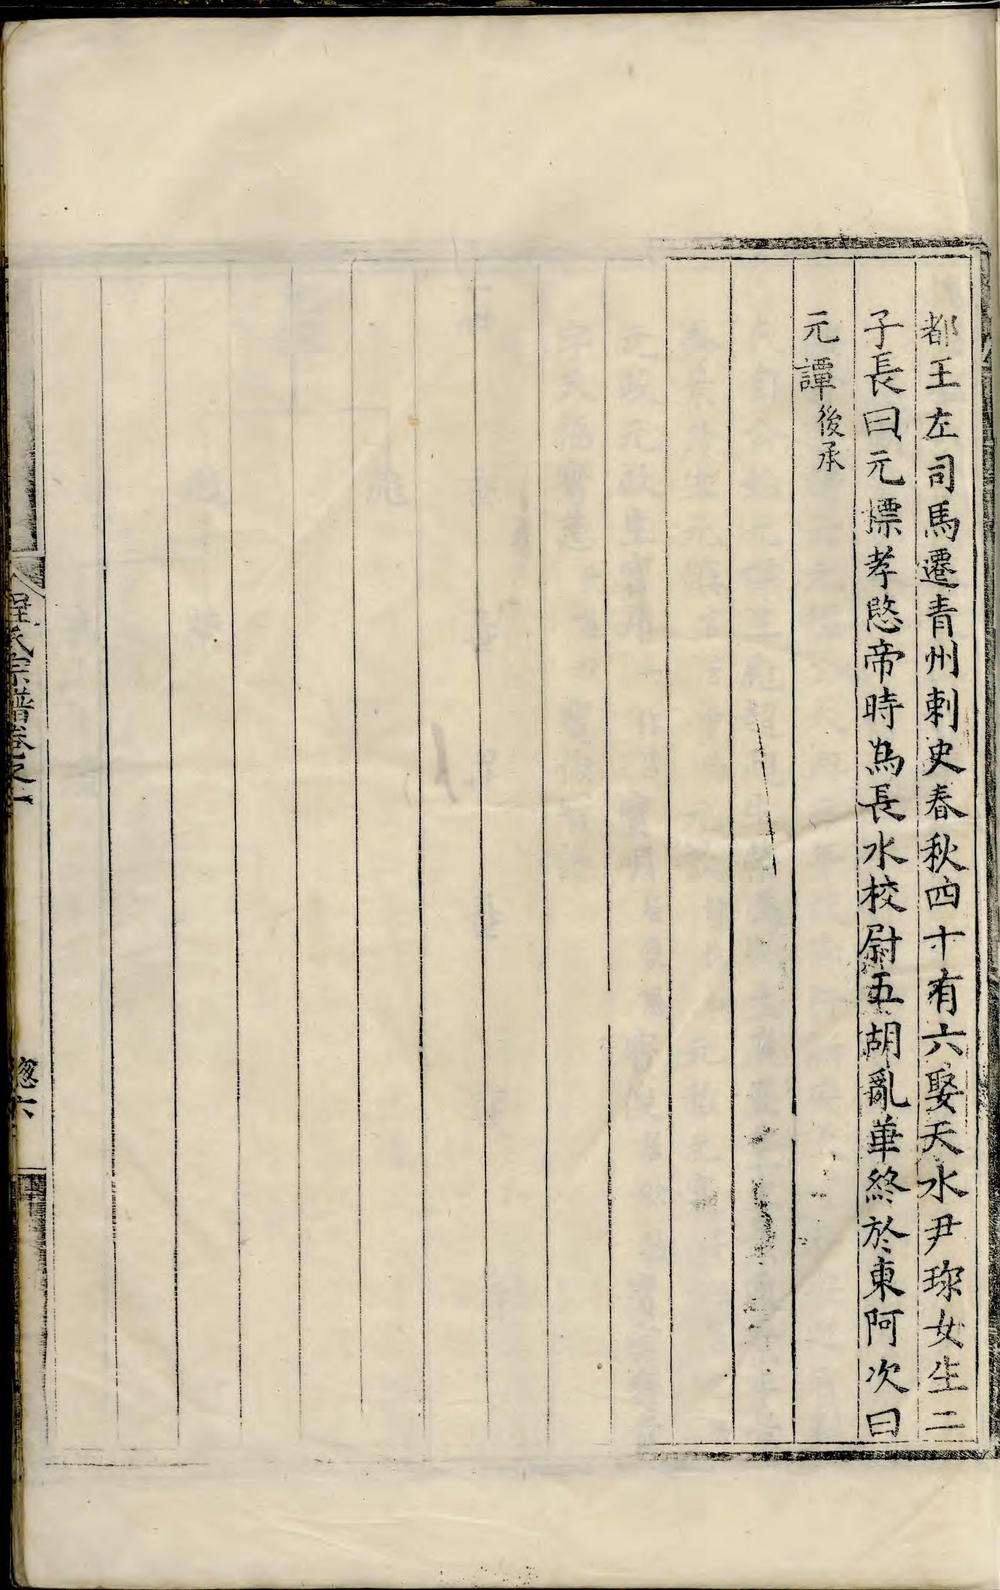 都王左司馬遷青州刺史春秋四十有六娶天水尹珎女生二
子長曰元摽孝愍帝時為長水校尉五胡亂華終於東阿次曰
元譚後承
程氏宗譜卷之一
總六